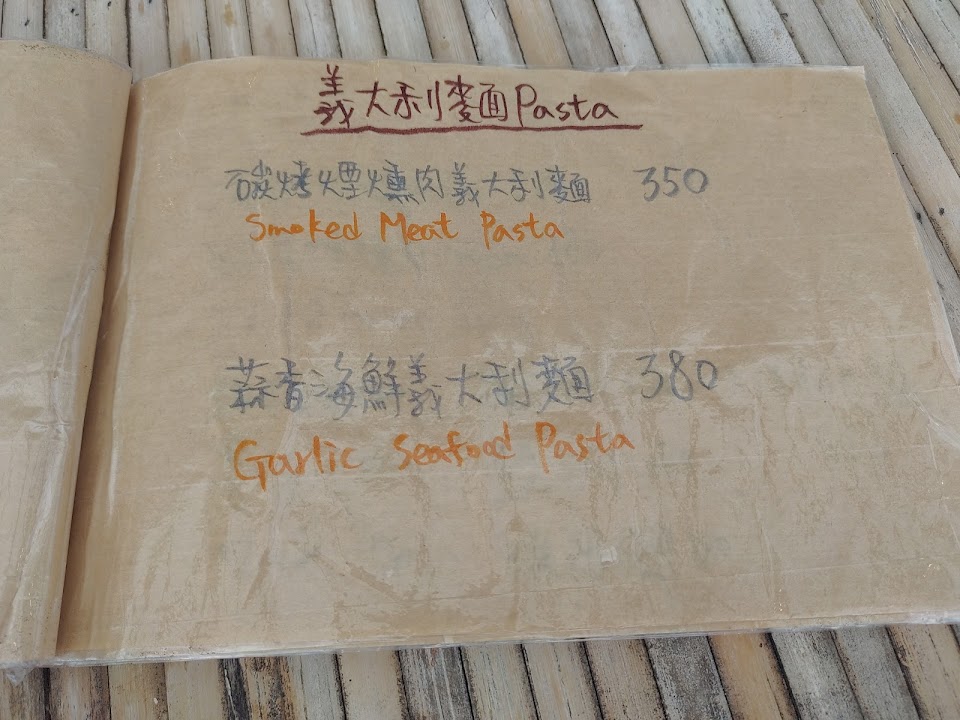 義大利麵Pasta
碳烤煙燻肉義大利麵 350
Smoked Meat Pasta
蒜香海鮮義大利麵 380
Garlic Seafood Pasta